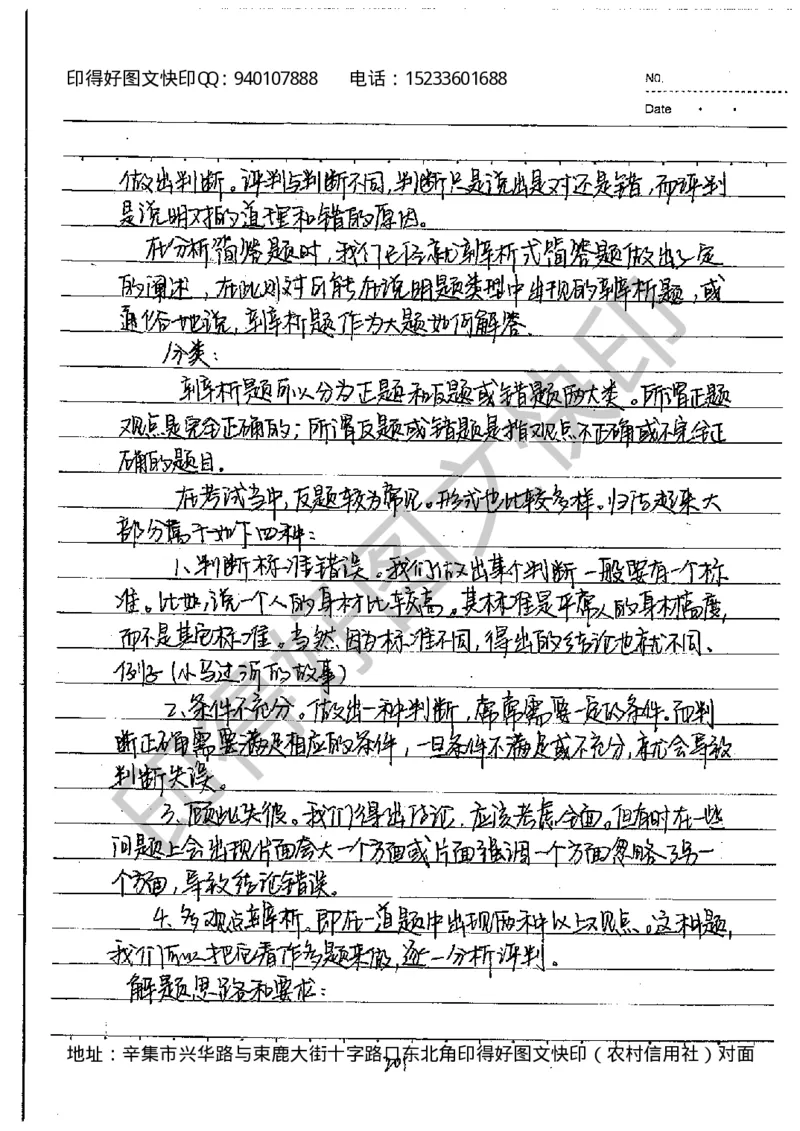 印得好图文快印QQ：940107888 电话：15233601688
No.
Date
做出判断。评判与判断不同,判断只是说出是对还是错,而评判
是说明对的道理和错的原因。
在分析简答题时,我们已经就辨析式简答题做出一定
的阐述,在此则对可能在说明题类型中出现的辨析题,或
通俗一地说,辨析题作为大题如何解答.
1分类:
辨析题可以分为正题和反题或错题两大类。所谓正题
观点是完全正确的;所谓反题或错题是指观点不正确或不完全正
确的题目.
在考试当中,反题较为常见。形式也比较多样。归结起来大
部分属于如下四种:
1、判断标准错误。我们做出某个判断一般要有一个标
准。比如,说一个人的身材比较高。其标准是平常人的身材高度,
而不是其它标准。当然因为标准不同,得出的结论也就不同、
例好(小马过河的故事)
2、条件不充分。做出一种判断,常常需要一定的条件。而判
断正确需要满足相应的条件,一旦条件不满足或不充分,就会导致
判断失误。
3、顾此失彼。我们得出结论,应该考虑全面。但有时在一些
问题上会出现片面夸大一个方面或片面强调一个方面忽略了另一
个方面,导致结论错误。
4、多观点辨析。即在一道题中出现两种以上观点。这种题,
我们可以把它看作多题来做,逐一分析评判.
解题思路和要求:
地址：辛集市兴华路与束鹿大街十字路口东北角印得好图文快印（农村信用社）对面
201
印得好图文快印